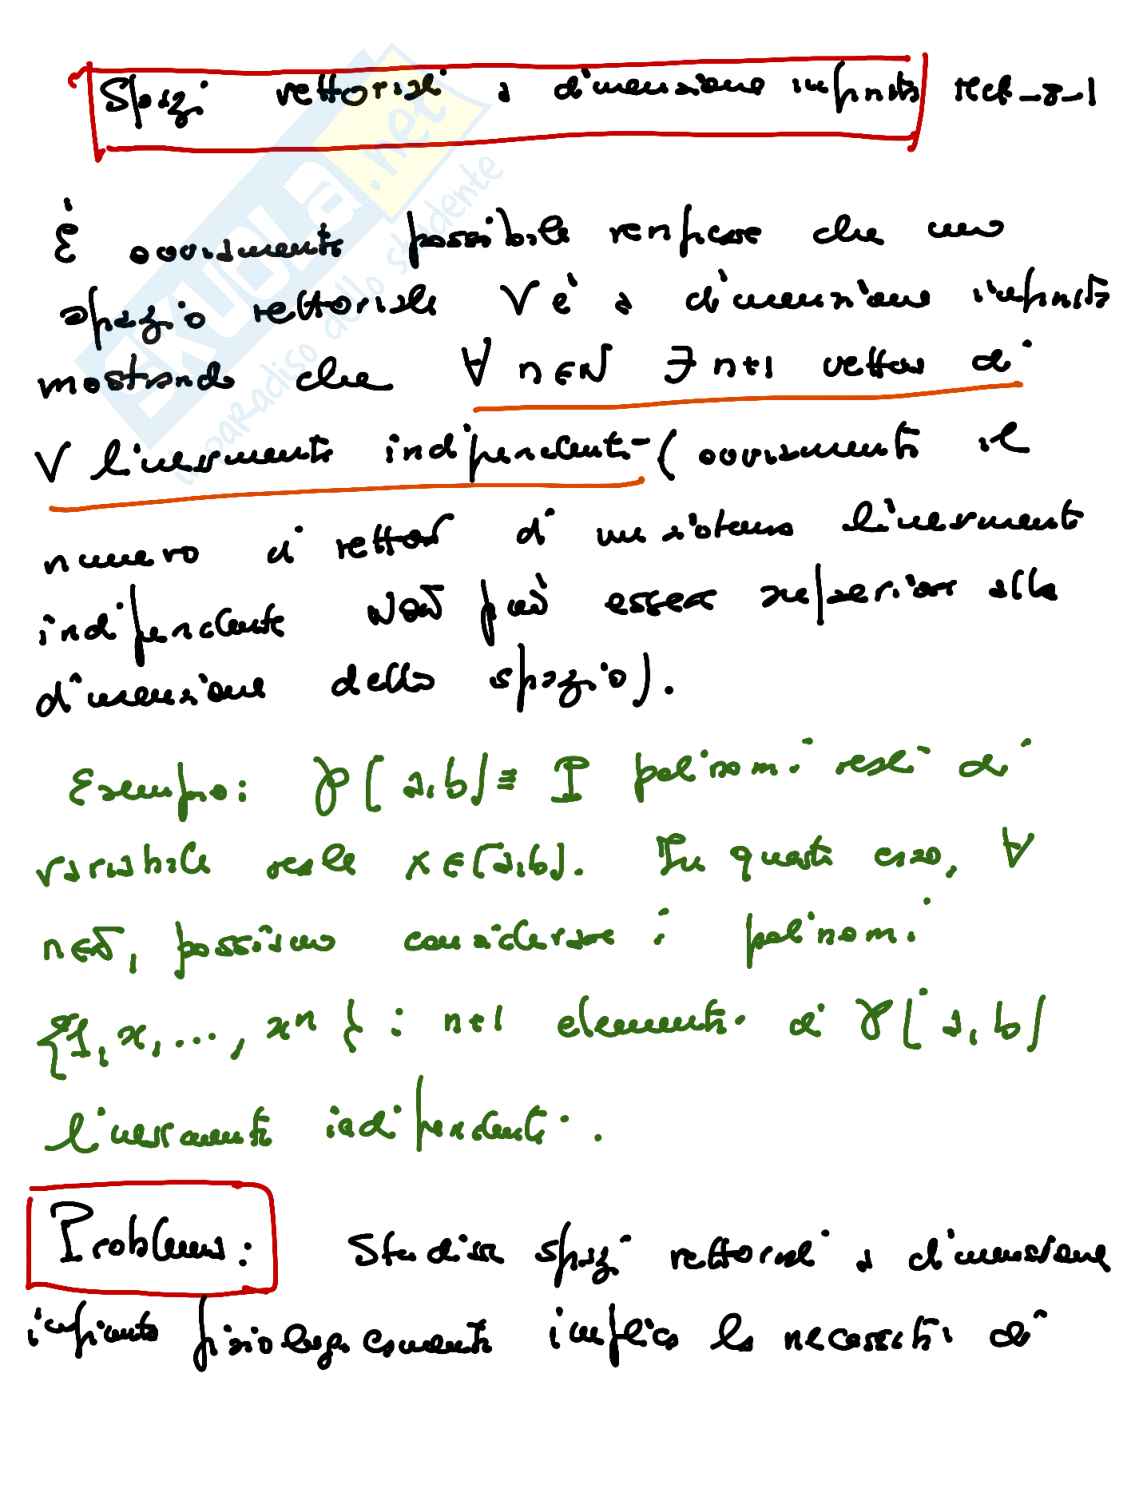 Spazi vettoriali a dimensione infinita
È ovviamente possibile verificare che uno
spazio vettoriale V è a dimensione infinita
mostrando che ∀ n∈N ∃ n+1 vettori di
V linearmente indipendenti (ovviamente il
numero di vettori di un sistema linearmente
indipendente NON può essere superiore alla
dimensione dello spazio).
Esempio: P[a,b] ≡ I polinomi reali di
variabile reale x∈[a,b]. In questo caso, ∀
n∈N, possiamo considerare i polinomi
{1, x, ..., xⁿ} : n+1 elementi di P[a,b]
linearmente indipendenti.
Problema: Studiare spazi vettoriali a dimensione
infinita fisiologicamente implica la necessità di
SKUOLA.net
il paradiso dello studente